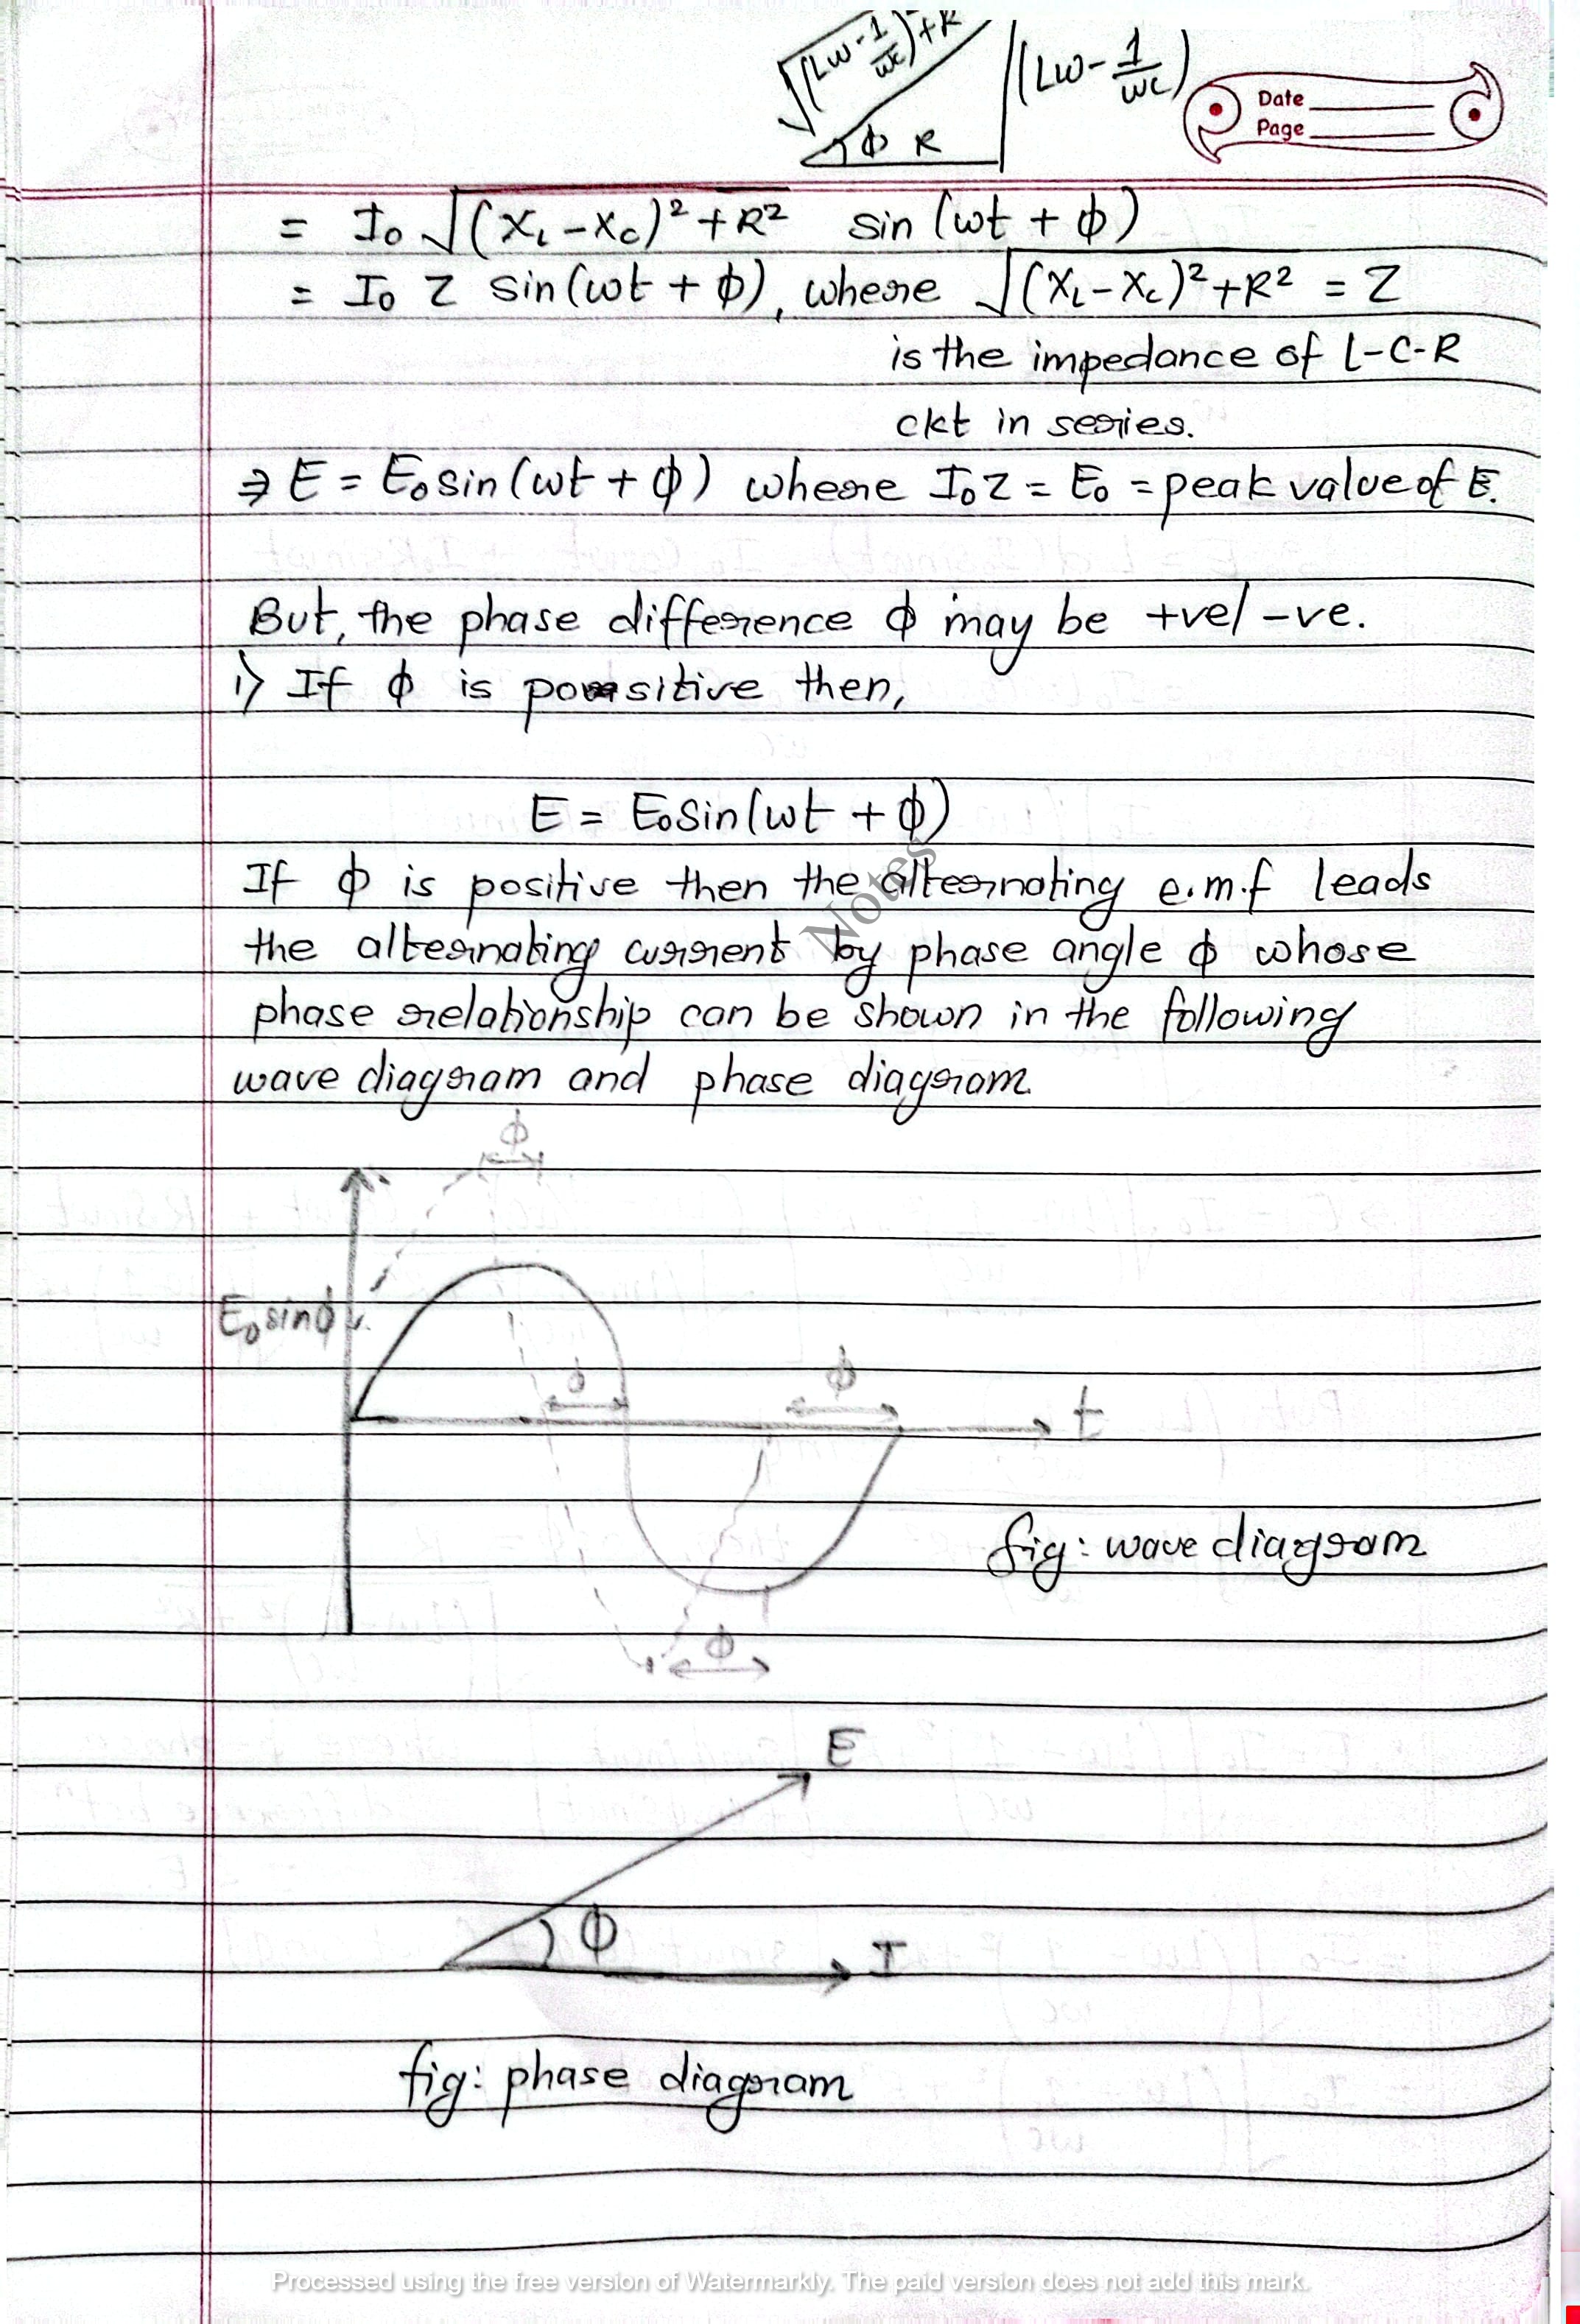 √(Lω-1/ωc)+R
(Lω-1/ωc)
ϕ R
Date
Page
= I₀ √(X_L-X_C)²+R² sin (ωt + ϕ)
= I₀ Z sin(ωt + ϕ), where √(X_L-X_C)²+R² = Z
is the impedance of L-C-R
ckt in series.
⇒ E = E₀sin(ωt + ϕ) where I₀Z = E₀ = peak value of E.
But, the phase difference ϕ may be +ve/-ve.
i) If ϕ is positive then,
E = E₀Sin(ωt + ϕ)
If ϕ is positive then the alternating e.m.f leads
the alternating current by phase angle ϕ whose
phase relationship can be shown in the following
wave diagram and phase diagram
Notes
ϕ
E₀sinϕ
ϕ
ϕ
t
fig: wave diagram
ϕ
E
ϕ
I
fig: phase diagram
Processed using the free version of Watermarkly. The paid version does not add this mark.